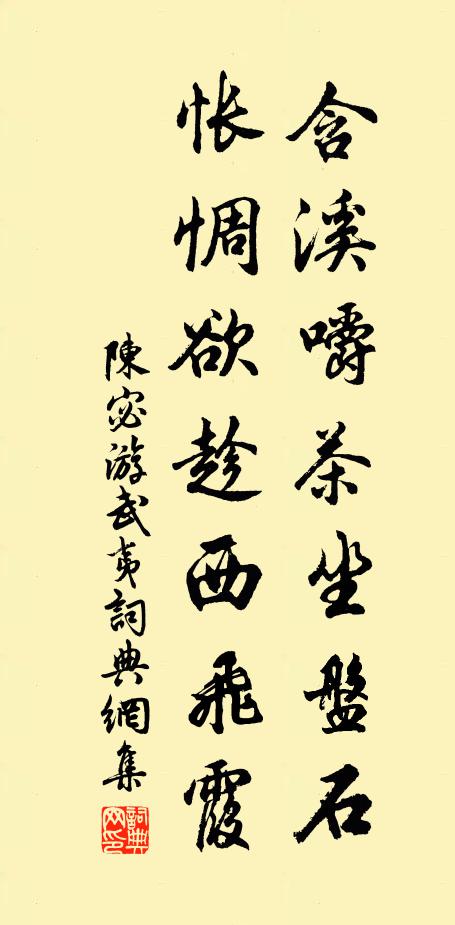 含溪嚼茶坐盤石
怅惆欲趁西飛霞
陳宓游武夷詞典網集
詞典網印